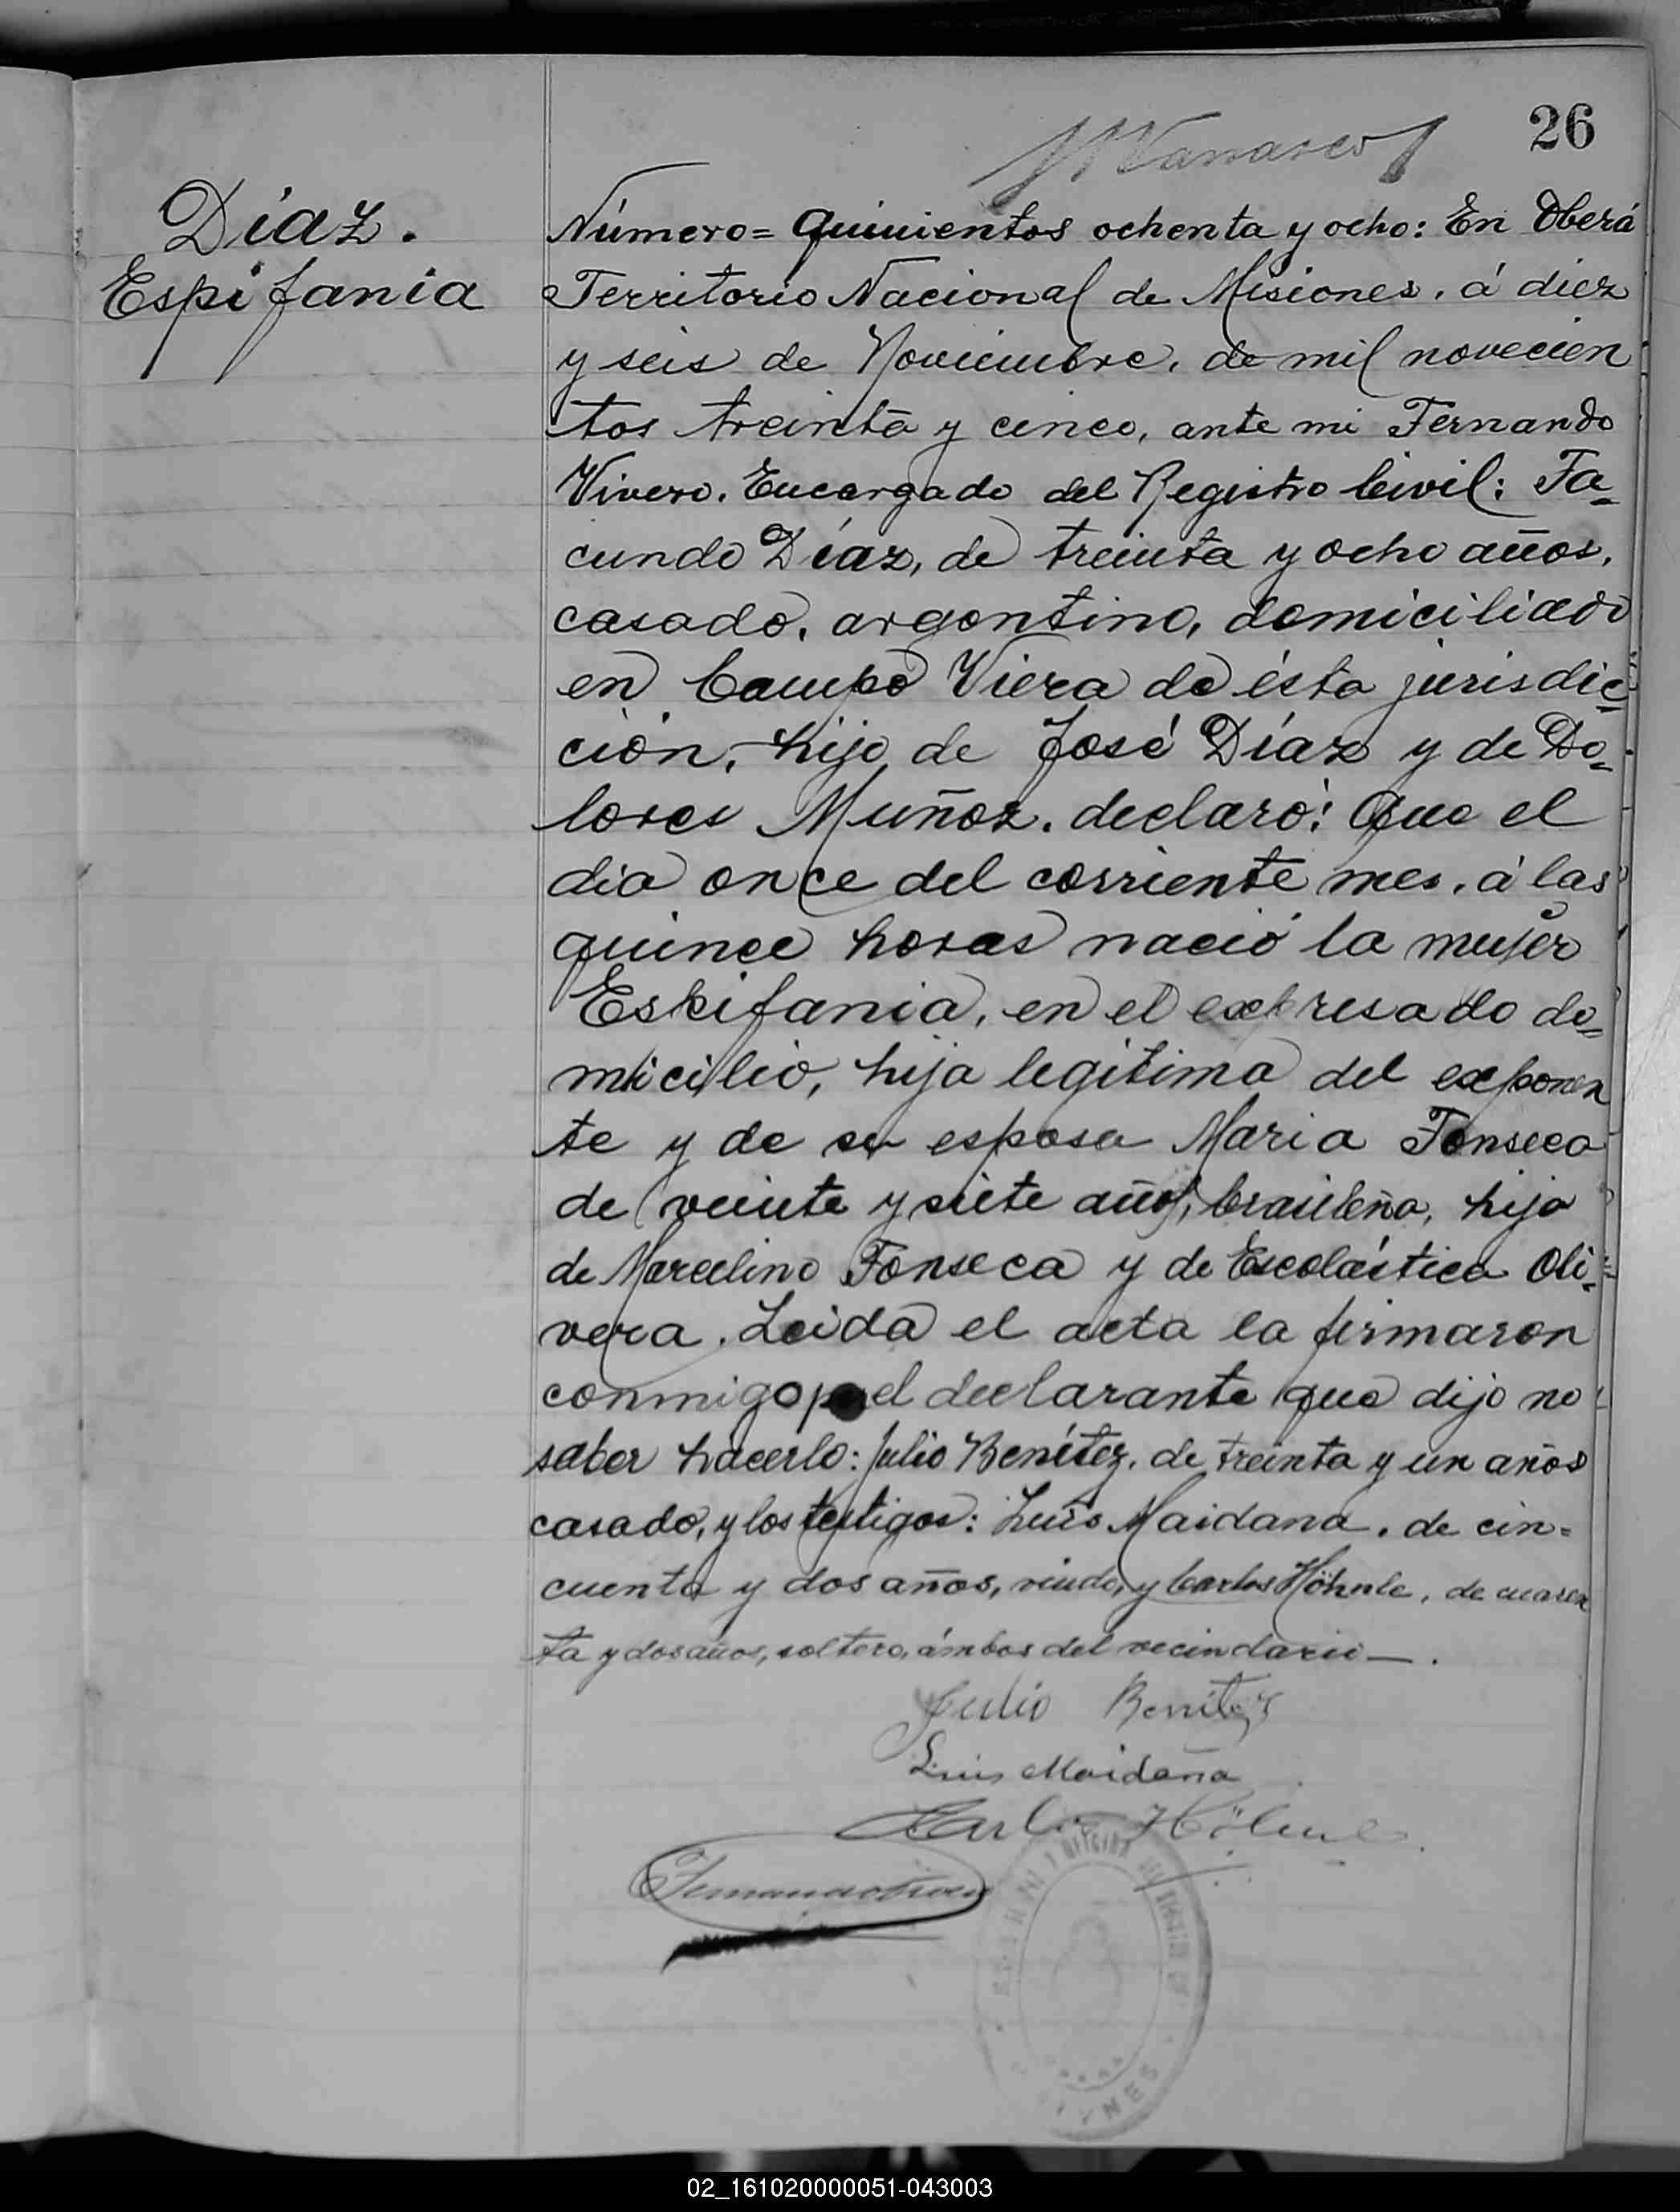 26
Díaz.
Espifania
Número = Quinientos ochenta y ocho: En Oberá
Territorio Nacional de Misiones, á diez
y seis de Noviembre, de mil novecien
tos treinta y cinco, ante mi Fernando
Vivero, Encargado del Registro Civil: Fa=
cundo Díaz, de treinta y ocho años,
casado, argentino, domiciliado
en Campo Viera de ésta jurisdic=
ción, hijo de José Díaz y de Do=
lores Muñoz, declaró: Que el
día once del corriente mes, á las
quince horas nació la mujer
Espifania, en el expresado do=
micilio, hija legítima del exponen
te y de su esposa Maria Fonseca
de veinte y siete años, brasileña, hija
de Marcelino Fonseca y de Escolástica Oli=
vera. Leida el acta la firmaron
conmigo el declarante que dijo no
saber hacerlo: Julio Benítez, de treinta y un años
casado, y los testigos: Luis Maidana, de cin=
cuenta y dos años, viudo, y Carlos Höhnle, de cuaren
ta y dos años, soltero, ámbos del vecindario—.
Julio Benitez
Luis Maidana
Carlos
02_161020000051-043003